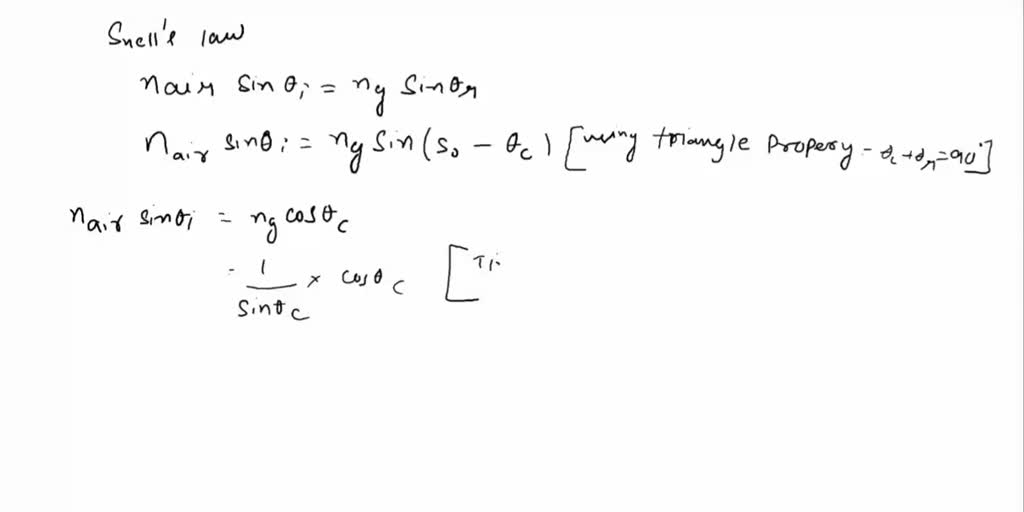 Snell's law
nair sin θi = ng Sinθr
nair sinθi = ng Sin(So - θc) [using triangle Propery - θc+θr=90°]
nair sinθi = ng cosθc
= 1/Sinθc × cosθc [Tri